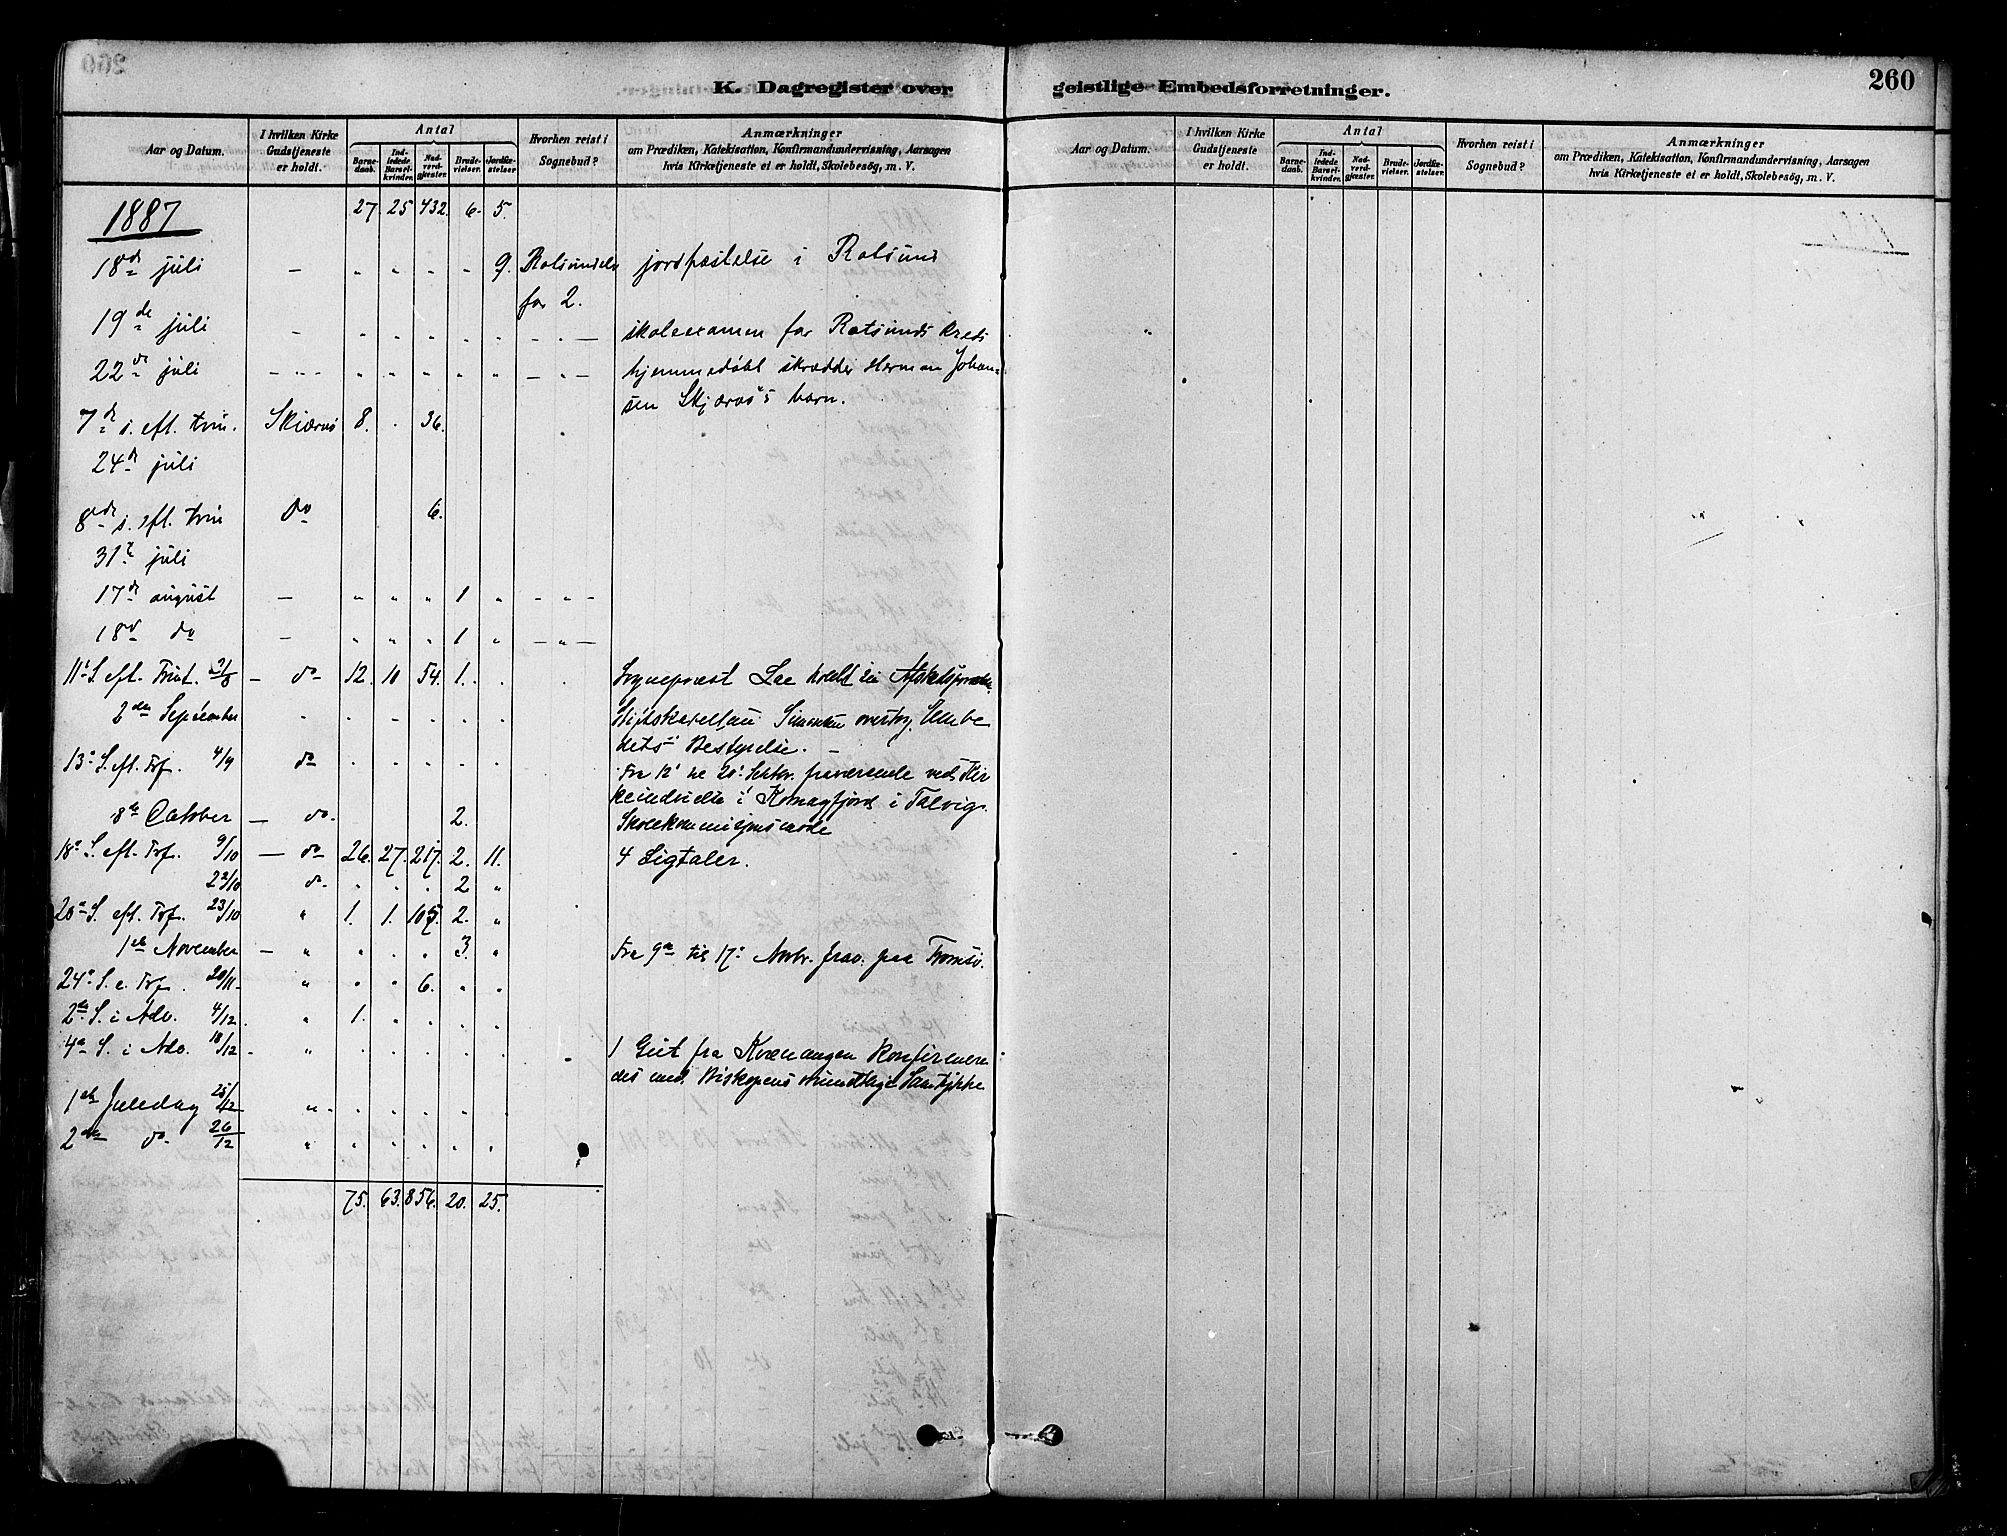 260
K. Dagregister over geistlige Embedsforretninger.
Aar og Datum.
I hvilken Kirke Gudstjeneste er holdt.
Antal
Barnedaab.
Indledede Barselkvinder.
Nadverdgjæster.
Brudevielser.
Jordfæstelser
Hvorhen reist i Sognebud?
Anmærkninger
om Prædiken, Katekisation, Konfirmandundervisning, Aarsagen
hvis Kirketjeneste ei er holdt, Skolebesøg, m. V.
Aar og Datum.
I hvilken Kirke Gudstjeneste er holdt.
Antal
Barnedaab.
Indledede Barselkvinder.
Nadverdgjæster.
Brudevielser.
Jordfæstelser.
Hvorhen reist i Sognebud?
Anmærkninger
om Prædiken, Katekisation, Konfirmandundervisning, Aarsagen
hvis Kirketjeneste ei er holdt, Skolebesøg, m. V.
1887 27. 25 432. 6. 5.
18de juli – " " " " 9. Rotsundelv jordfæstelse i Rotsund
for 2.
19de juli – " " " " " – " – skoleexamen for Rotsunds kreds
22de juli – " – " " " " " – " – hjemmedøbt skrædder Herman Johan-
sen Skjærvø's barn.
7de s. eft. trin. Skjærvø 8. . 36.
24de juli
8de s. eft. trin do 6.
31te juli
17de august – " " " 1 " – " –
18de do – " " " 1 " – " –
11te S. eft. Trinit. 21/8 – do 12. 10 54. 1. . Sognepræst holdt sin Afskedspræken.
2den September Stiftskapellan Simonsen overtog Embe
dets Bestyrelse. –
13de S. eft. Trf. 4/9 do Fra 12te til 20de Septbr. fraværende ved Kir
keindvielse i Komagfjord i Talvig.
8de October – do. 2. Skolekommisjonsmøde
18de S. eft. Trf. 9/10 – do 26. 27. 217. 2. 11. 4 Ligtaler.
22/10 do . . . 2 "
20de S. eft. Trf. 23/10 " 1. 1. 105. 2. "
1ste November – " " " . 3. " Fra 9de til 17de Novbr. frav. paa Tromsø.
24de S. e. Trf. 20/11 " " " 6. " "
2den S. i Adv. 4/12. " 1. " " " "
4de S. i Adv. 18/12 " 1 Gut fra Kvænangen Konfirmere
des med Biskopens Samtykke
1ste Juledag 25/12 "
2den do 26/12 "
75. 63. 856. 20. 25.